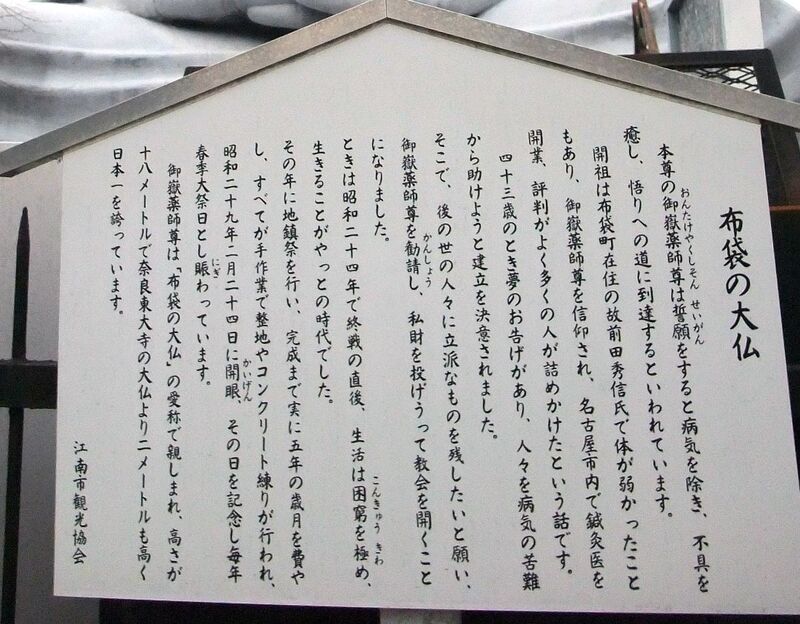 布袋の大仏
本尊の御嶽薬師尊は誓願をすると病気を除き、不具を
癒し、悟りへの道に到達するといわれています。
開祖は布袋町在住の故前田秀信氏で体が弱かったこと
もあり、御嶽薬師尊を信仰され、名古屋市内で鍼灸医を
開業、評判がよく多くの人が詰めかけたという話です。
四十三歳のとき夢のお告げがあり、人々を病気の苦難
から助けようと建立を決意されました。
そこで、後の世の人々に立派なものを残したいと願い、
御嶽薬師尊を勧請し、私財を投げうって教会を開くこと
になりました。
ときは昭和二十四年で終戦の直後、生活は困窮を極め、
生きることがやっとの時代でした。
その年に地鎮祭を行い、完成まで実に五年の歳月を費や
し、すべてが手作業で整地やコンクリート練りが行われ、
昭和二十九年二月二十四日に開眼、その日を記念し毎年
春季大祭日とし賑わっています。
御嶽薬師尊は「布袋の大仏」の愛称で親しまれ、高さが
十八メートルで奈良東大寺の大仏より二メートルも高く
日本一を誇っています。
江南市観光協会